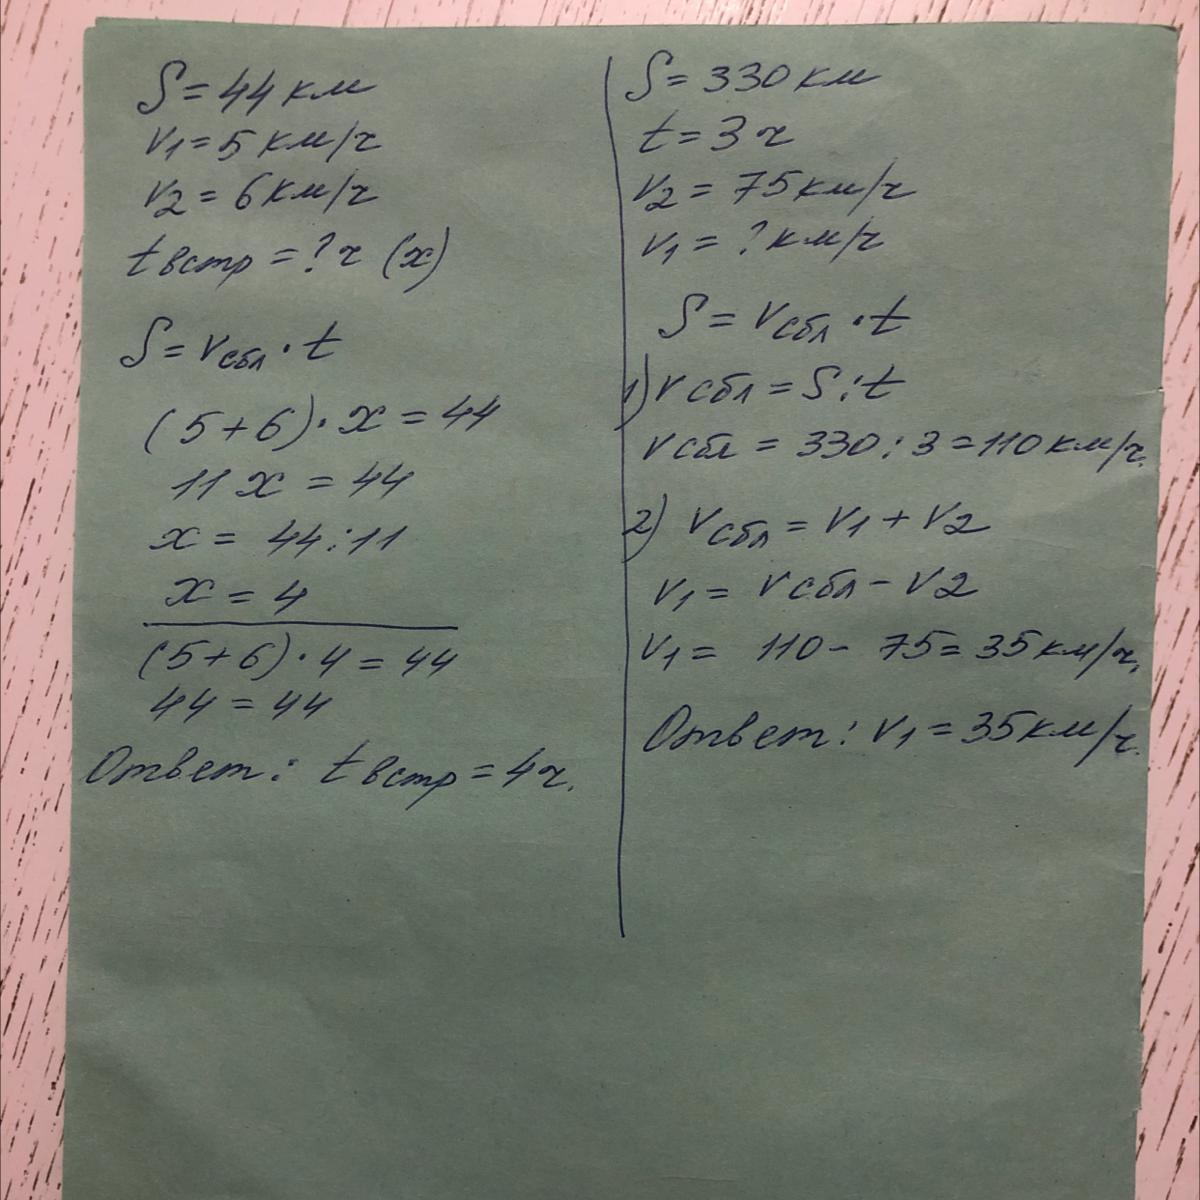 S = 44 км
v1 = 5 км/ч
v2 = 6 км/ч
t встр = ? ч (x)
S = vсбл · t
(5 + 6) · x = 44
11 x = 44
x = 44 : 11
x = 4
(5 + 6) · 4 = 44
44 = 44
Ответ: t встр = 4 ч.
S = 330 км
t = 3 ч
v2 = 75 км/ч
v1 = ? км/ч
S = vсбл · t
1) v сбл = S : t
v сбл = 330 : 3 = 110 км/ч.
2) vсбл = v1 + v2
v1 = v сбл - v2
v1 = 110 - 75 = 35 км/ч.
Ответ: v1 = 35 км/ч.